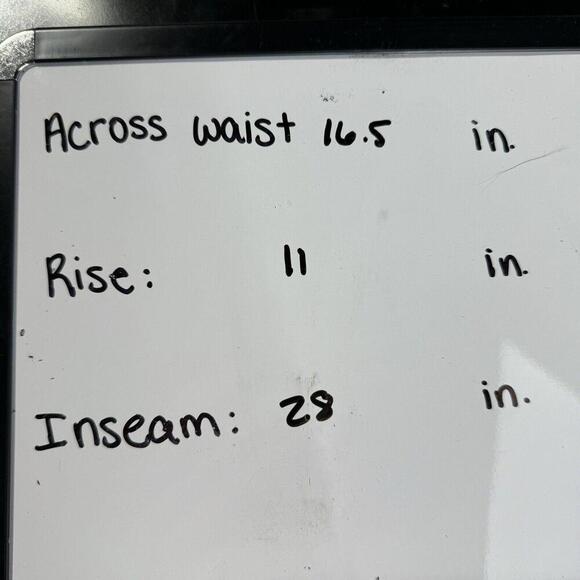 Across waist 16.5 in.
Rise: 11 in.
Inseam: 28 in.